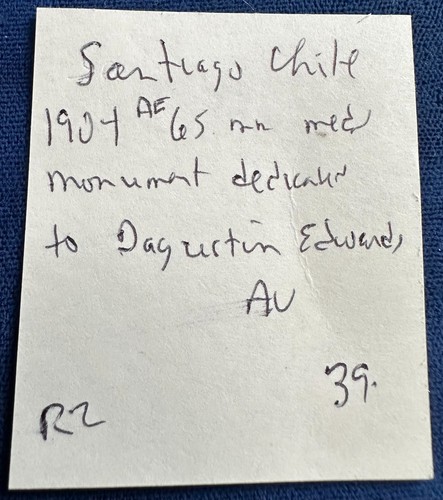 Santiago Chile
1904 AE 65 mm med
monument dedicated
to Dagustin Edwards
AU
39.
R2